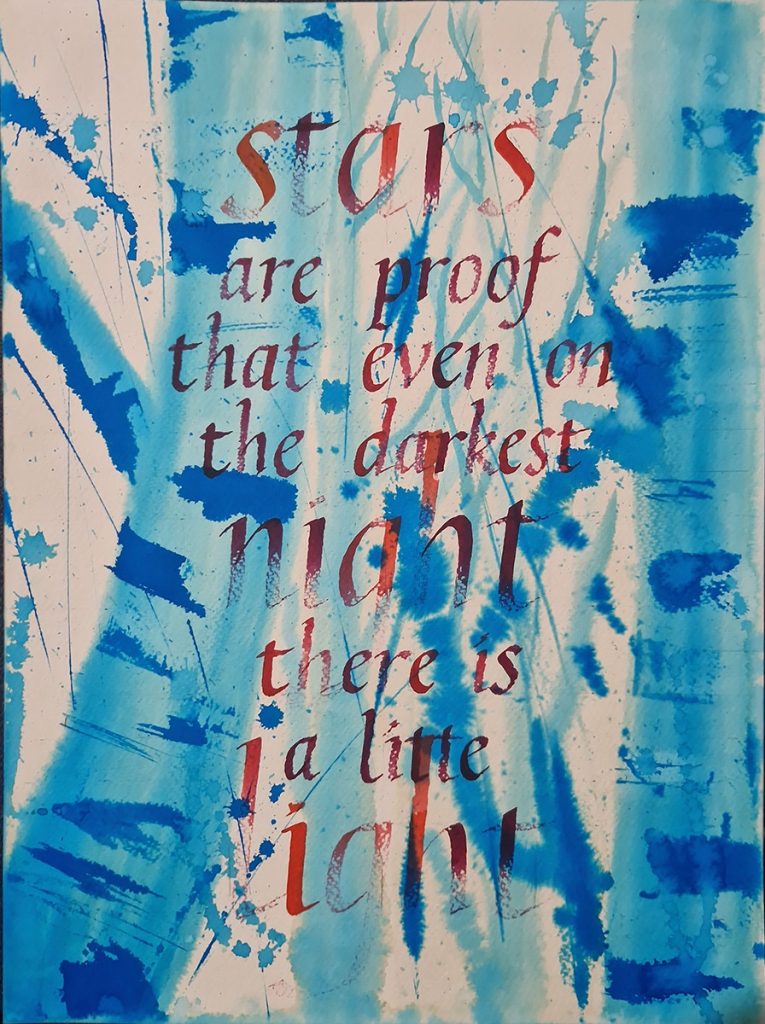 stars
are proof
that even on
the darkest
night
there is
a litte
light